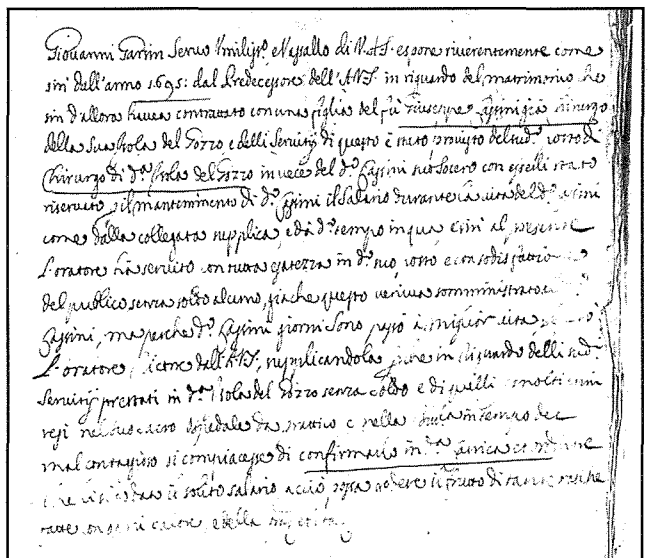 Giovanni Garsin Servo Umiliss.º e Vassallo di V.A.S. espone riverentemente come
sin dall'anno 1695: dal Predecessore dell'A.V.S. in riguardo del matrimonio che
sin d'allora haveva contrattato con una figlia del fù Giuseppe Cassini già Chirurgo
della Sua Isola del Gozzo e delli Servitij di questo è stato provisto del sud.º posto di
Chirurgo di d.ª Isola del Gozzo in vece del d.º Cassini suo Socero con esserli stato
riservato il mantenimento di d.º Cassini il Salario durante la vita del d.º Cassini
come dalla collegata supplica, e da d.º tempo in qua e sin al presente
l'oratore hà servito con tutta esatezza in d.º suo posto e con sodisfattione
del publico senza soldo alcuno, giache questo veniva somministrato
Cassini, ma perche d.º Cassini giorni sono passò à miglior vita
l'oratore ricorre dall'A.V.S. supplicandola in riguardo delli sud.
Servitij prestati in d.ª Isola del Gozzo senza soldo e di quelli molti anni
resi nel suo sacro ospedale da prattico e nella in tempo del
mal contaggioso si compiacesse di confirmarlo in d.ª carica et ordinare
che li sia data il solito salario acciò possa godere il frutto di tante fatiche
fatte e della